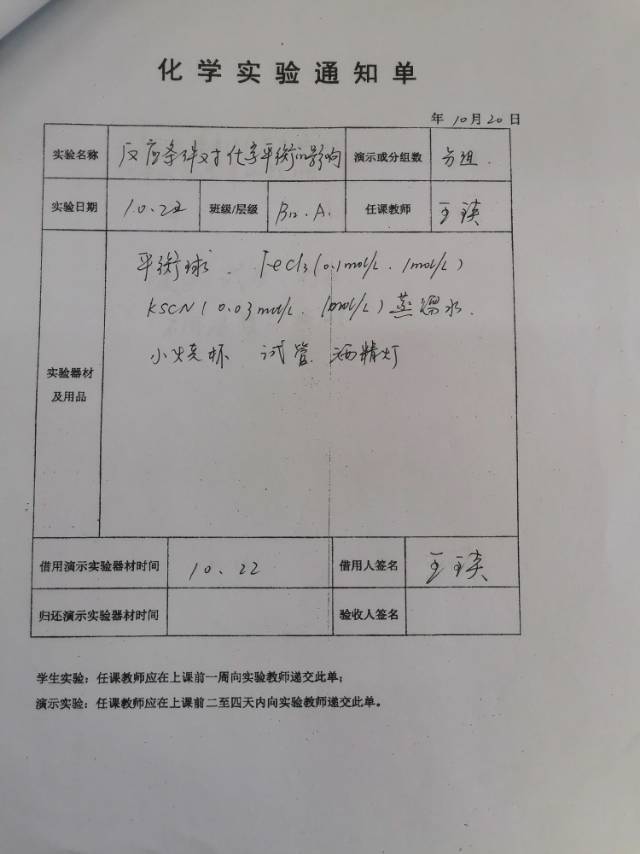 化学实验通知单
年 10月20日
实验名称 反应条件对化学平衡的影响 演示或分组数 分组.
实验日期 10.22 班级/层级 B12.A. 任课教师 王瑛
实验器材及用品
平衡球. FeCl3(0.1mol/L. 1mol/L)
KSCN(0.03mol/L. 1mol/L)蒸馏水.
小烧杯 试管 酒精灯
借用演示实验器材时间 10.22 借用人签名 王瑛
归还演示实验器材时间 验收人签名
学生实验：任课教师应在上课前一周向实验教师递交此单；
演示实验：任课教师应在上课前二至四天内向实验教师递交此单。